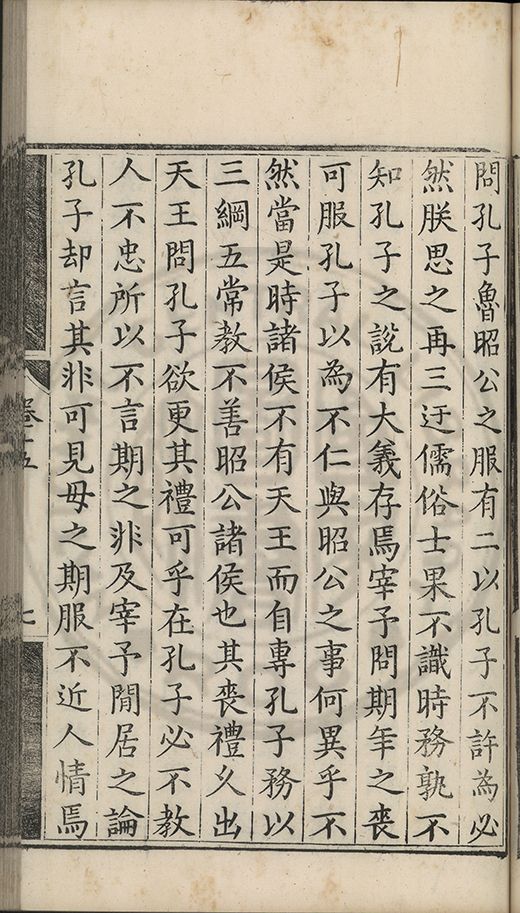 問孔子魯昭公之服有二以孔子不許為必
然朕思之再三迂儒俗士果不識時務孰不
知孔子之說有大義存焉宰予問期年之喪
可服孔子以為不仁與昭公之事何異乎不
然當是時諸侯不有天王而自專孔子務以
三綱五常教不善昭公諸侯也其喪禮乆出
天王問孔子欲更其禮可乎在孔子必不教
人不忠所以不言期之非及宰予閒居之論
孔子却言其非可見母之期服不近人情焉
卷十五
七